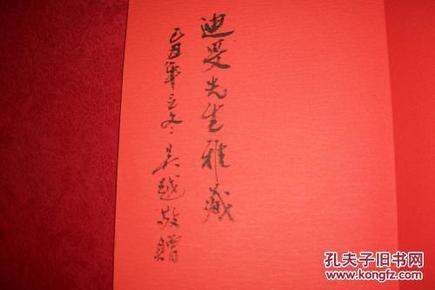 迪旻先生雅藏
己丑年立冬吴越敬赠
孔夫子旧书网
www.kongfz.com